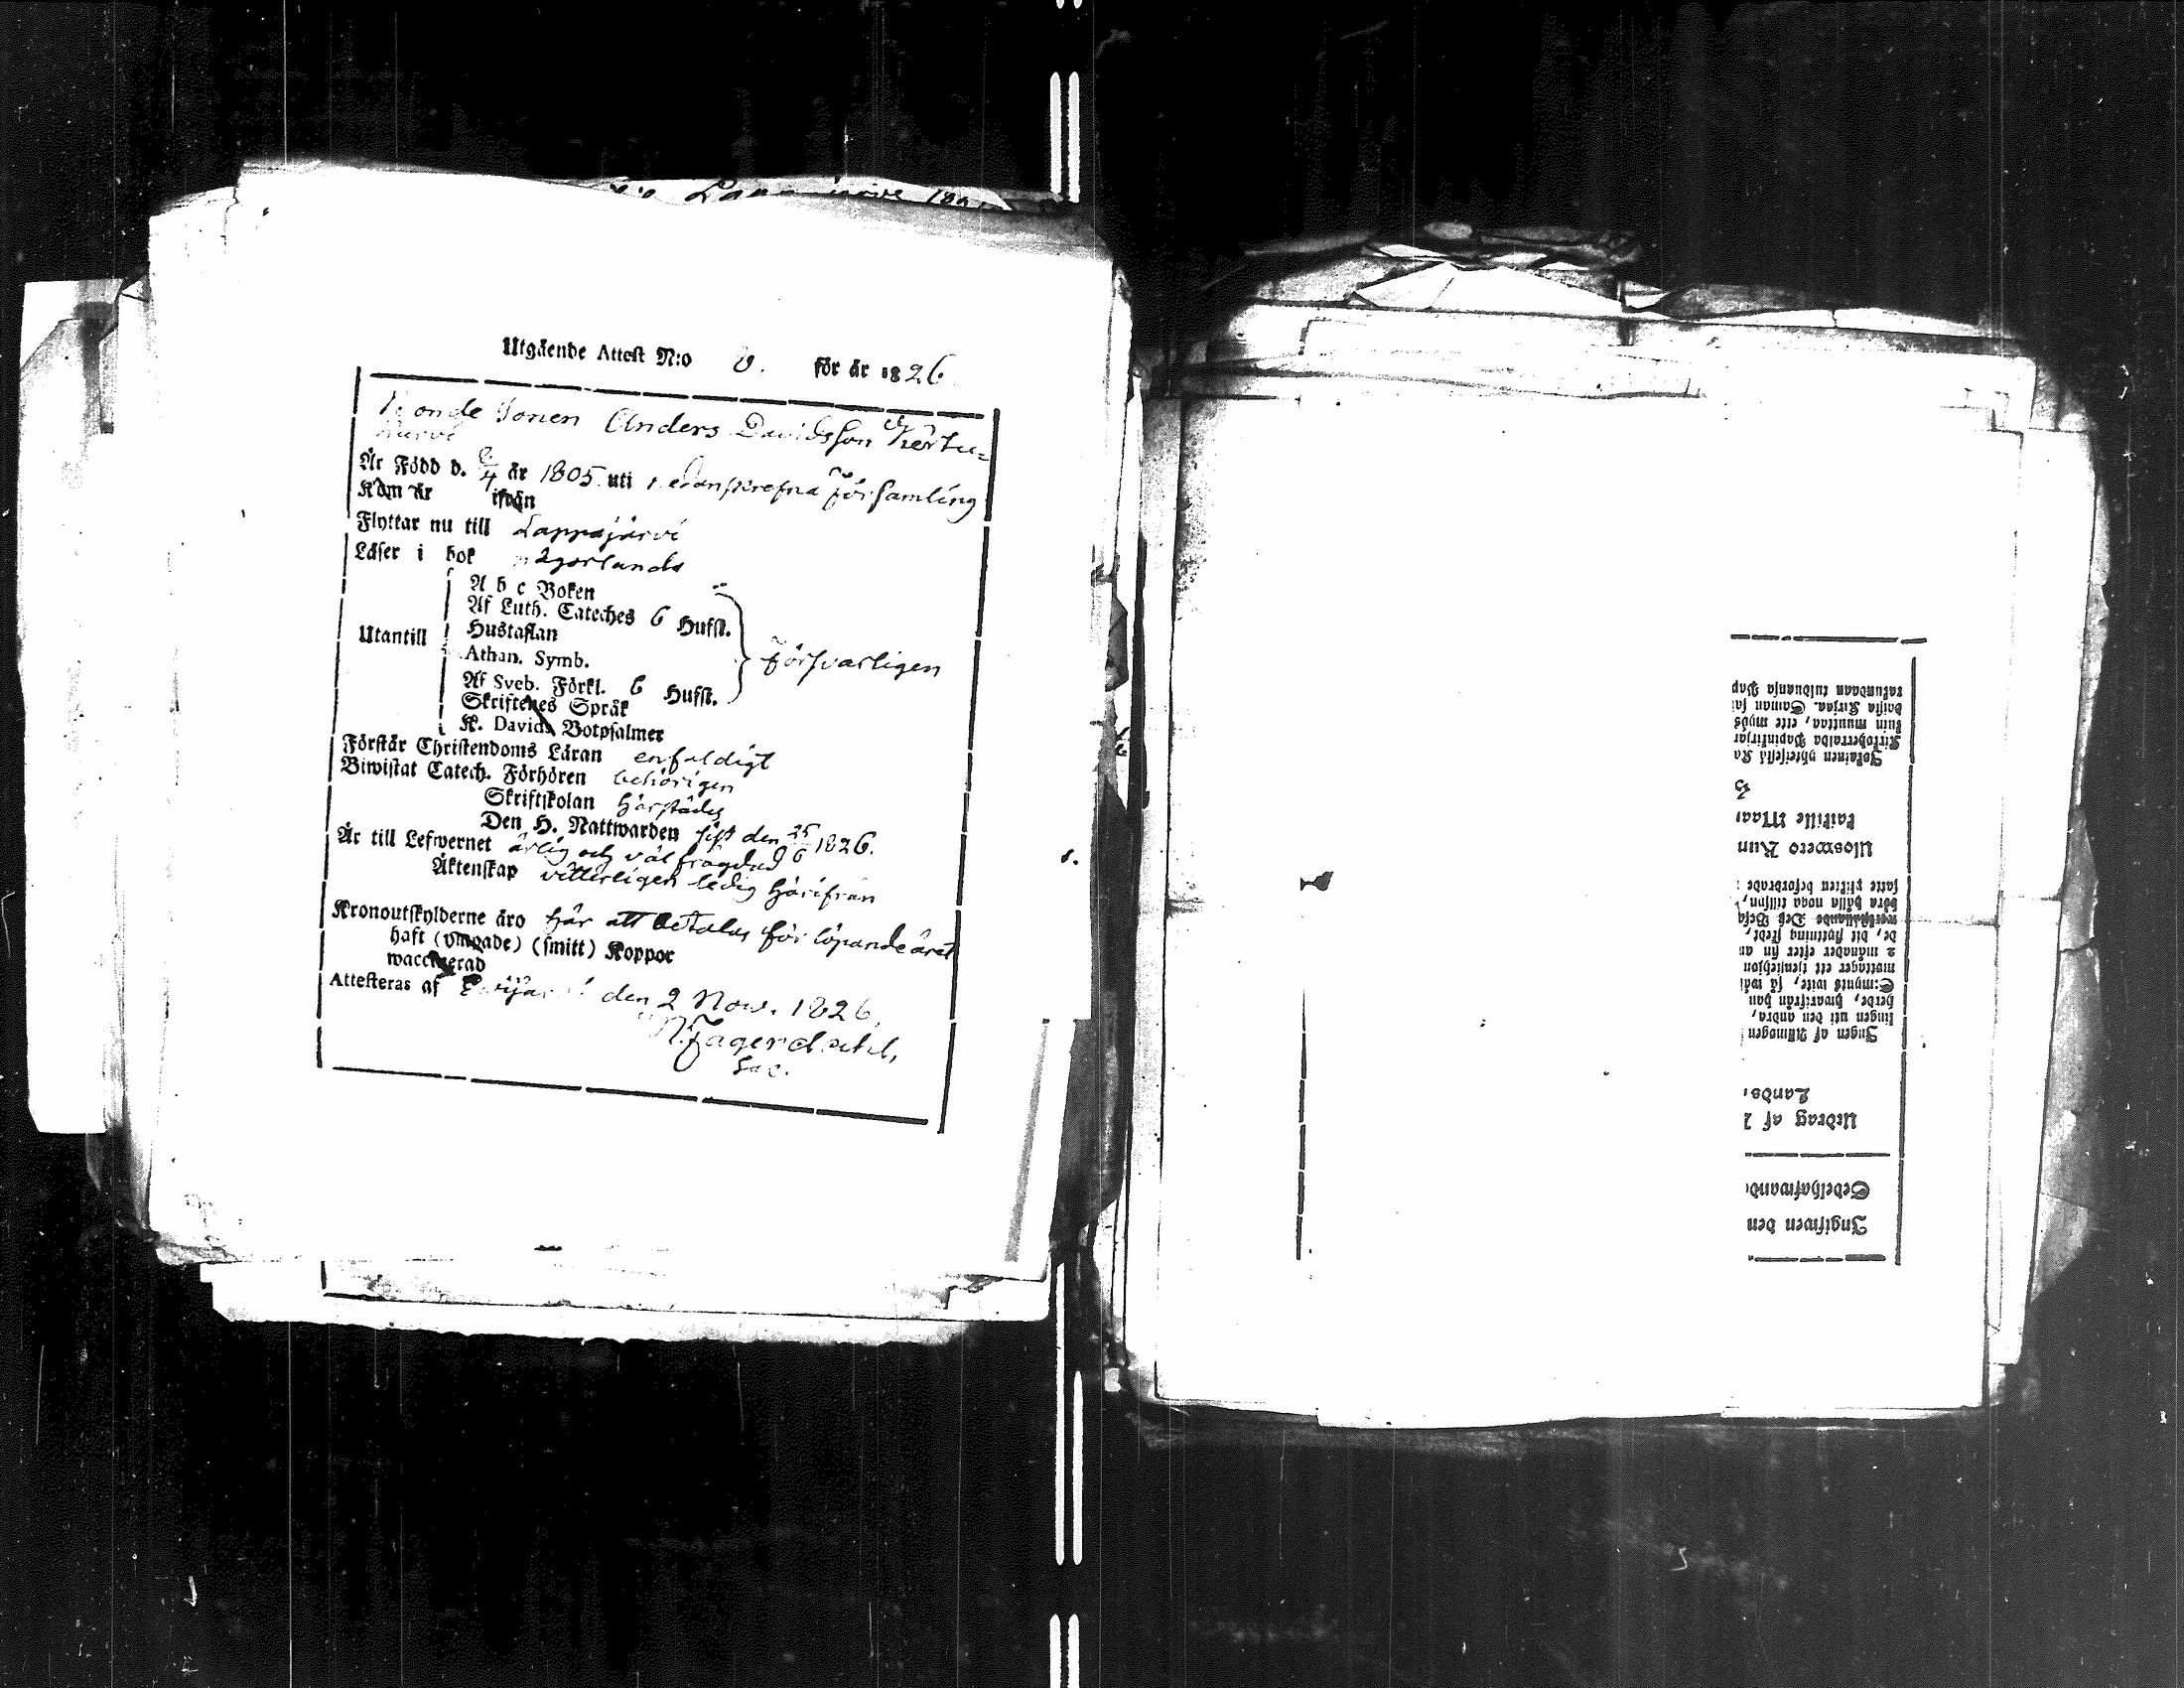 Lappajärvi
Utgående Attest N:o 8. för år 1826
Bonde Sonen Anders Davidsson Kertu=
kurvi
Är Född d. 2/4 år 1805 uti nedanskrefna Församling
Kom år ifrån
Flyttar nu till Lappajärvi
Läser i bok någorlunda
A b c Boken
Af Luth. Cateches 6 Hufst.
Utantill Hustaflan
Athan. Symb. Försvarligen
Af Sveb. Förkl. 6 Hufst.
Skriftenes Språk
K. Davids Botpsalmer
Förstår Christendoms Läran enfaldigt
Biwistat Catech. Förhören behörigen
Skriftskolan härstädes
Den H. Nattwarden sist den 25/6 1826.
Är till Lefwernet ärlig och väl frägdad
Äktenskap vitterligen ledig härifrån
Kronoutskylderne äro här att betalas för löpande året
haft (vmgade) (smitt) Koppor
waccinerad
Attesteras af Ewijärvi den 2 Nov. 1826.
N. Fagerdahl,
Sac.
8.
Ingifwen den
Sedelhafwande
Utdrag af
Lands
Ingen af Allmogen
lingen uti den andra,
herde, hwarifrån han
C:mynts wite, så wäl
mottager ett tjenstehjon
2 månader efter sin an
de, dit flyttning skedt,
Des Befa
böra hålla noga tillsyn,
satte plikten befordrade
Ulosweto Kun
kaikille Maa
Jokainen yhteisestä Ka
Kirkoherralda Papinkirjar
kuin muuttaa, ette myös
daista Kirjaa. Saman sai
rakundaan tulduansa Pap